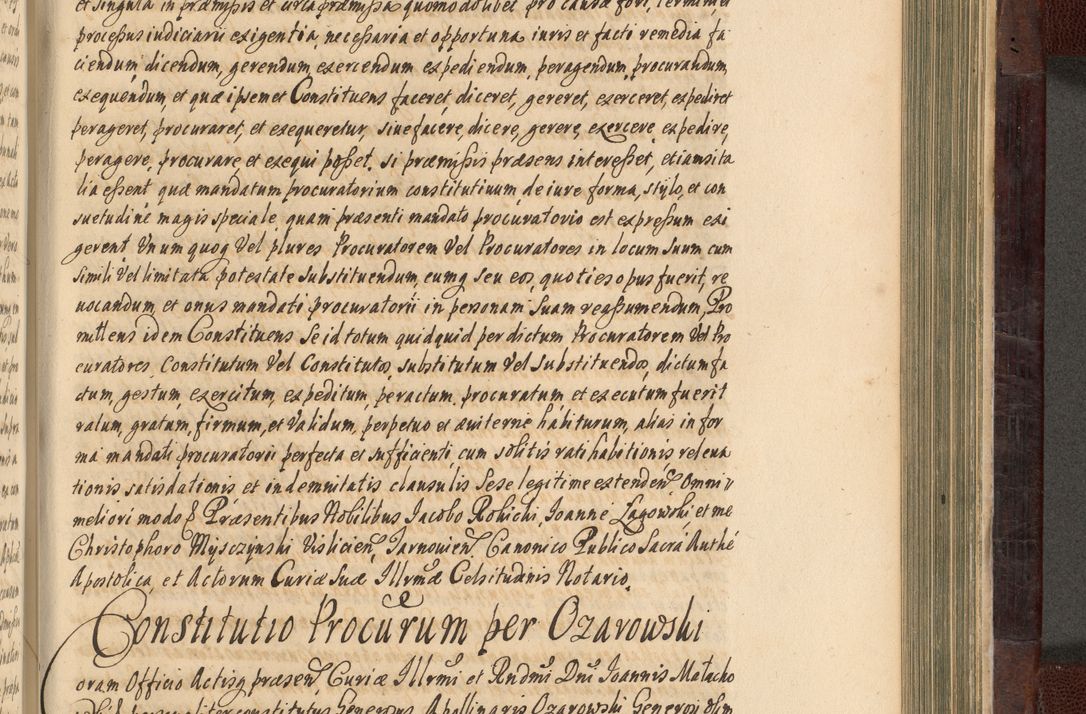 et singula in præmissis et circa præmissa quomodolibet pro causæ fori, termini, et
processus iudiciarii exigentia, necessaria et opportuna iuris et facti remedia fa
ciendum, dicendum, gerendum, exercendum expediendum, peragendum, procurandum,
exequendum, et quæ ipsemet Constituens faceret, diceret, gereret, exerceret, expediret
perageret, procuraret, et exequeretur, siue facere, dicere, gerere, exercere, expedire,
peragere, procurare et exequi posset, si præmissis præsens interesset, etiamsi ta
lia essent quæ mandatum procuratorium constitutiuum de iure forma, stylo, et con
suetudine magis speciale, quam præsenti mandato procuratorio est expressum exi
gerent Unumquoq Vel plures Procuratorem Vel Procuratores in locum suum cum
simili Vel limitata potestate substituendum, eumq seu eos, quoties opus fuerit, re
uocandum, et onus mandati procuratorii in personam suam reassumendum, Pro
mittens idem Constituens se id totum quidquid per dictum Procuratorem Vel Pro
curatores, Constitutum Vel Constitutos, substitutum Vel substituendos, dictum fa
ctum, gestum, exercitum, expeditum, peractum, procuratum et executum fuerit
ratum, gratum, firmum, et Validum, perpetuo et æuiterne habiturum, alias in for
ma mandati procuratorii perfecta et sufficienti cum solitis ratihabitionis releua
tionis satisdationis et indemnitatis clausulis sese legitime extenden, Omni
meliori modo Præsentibus Nobilibus Jacobo Rohichi, Joanne Lagowski et me
Christophoro Mysczynski Vislicien, Tarnouien, Canonico Publico Sacra Authe
Apostolica, et Actorum Curiæ Suæ Illrmæ Celsitudinis Notario.
Constitutio Procurum per Ozarowski
oram Officio Actisq præsen, Curiæ Illrmi et Rndmi Dni Joannis Małacho
personaliter constitutus Generosus Apollinaris Ozarowski Generosi olim